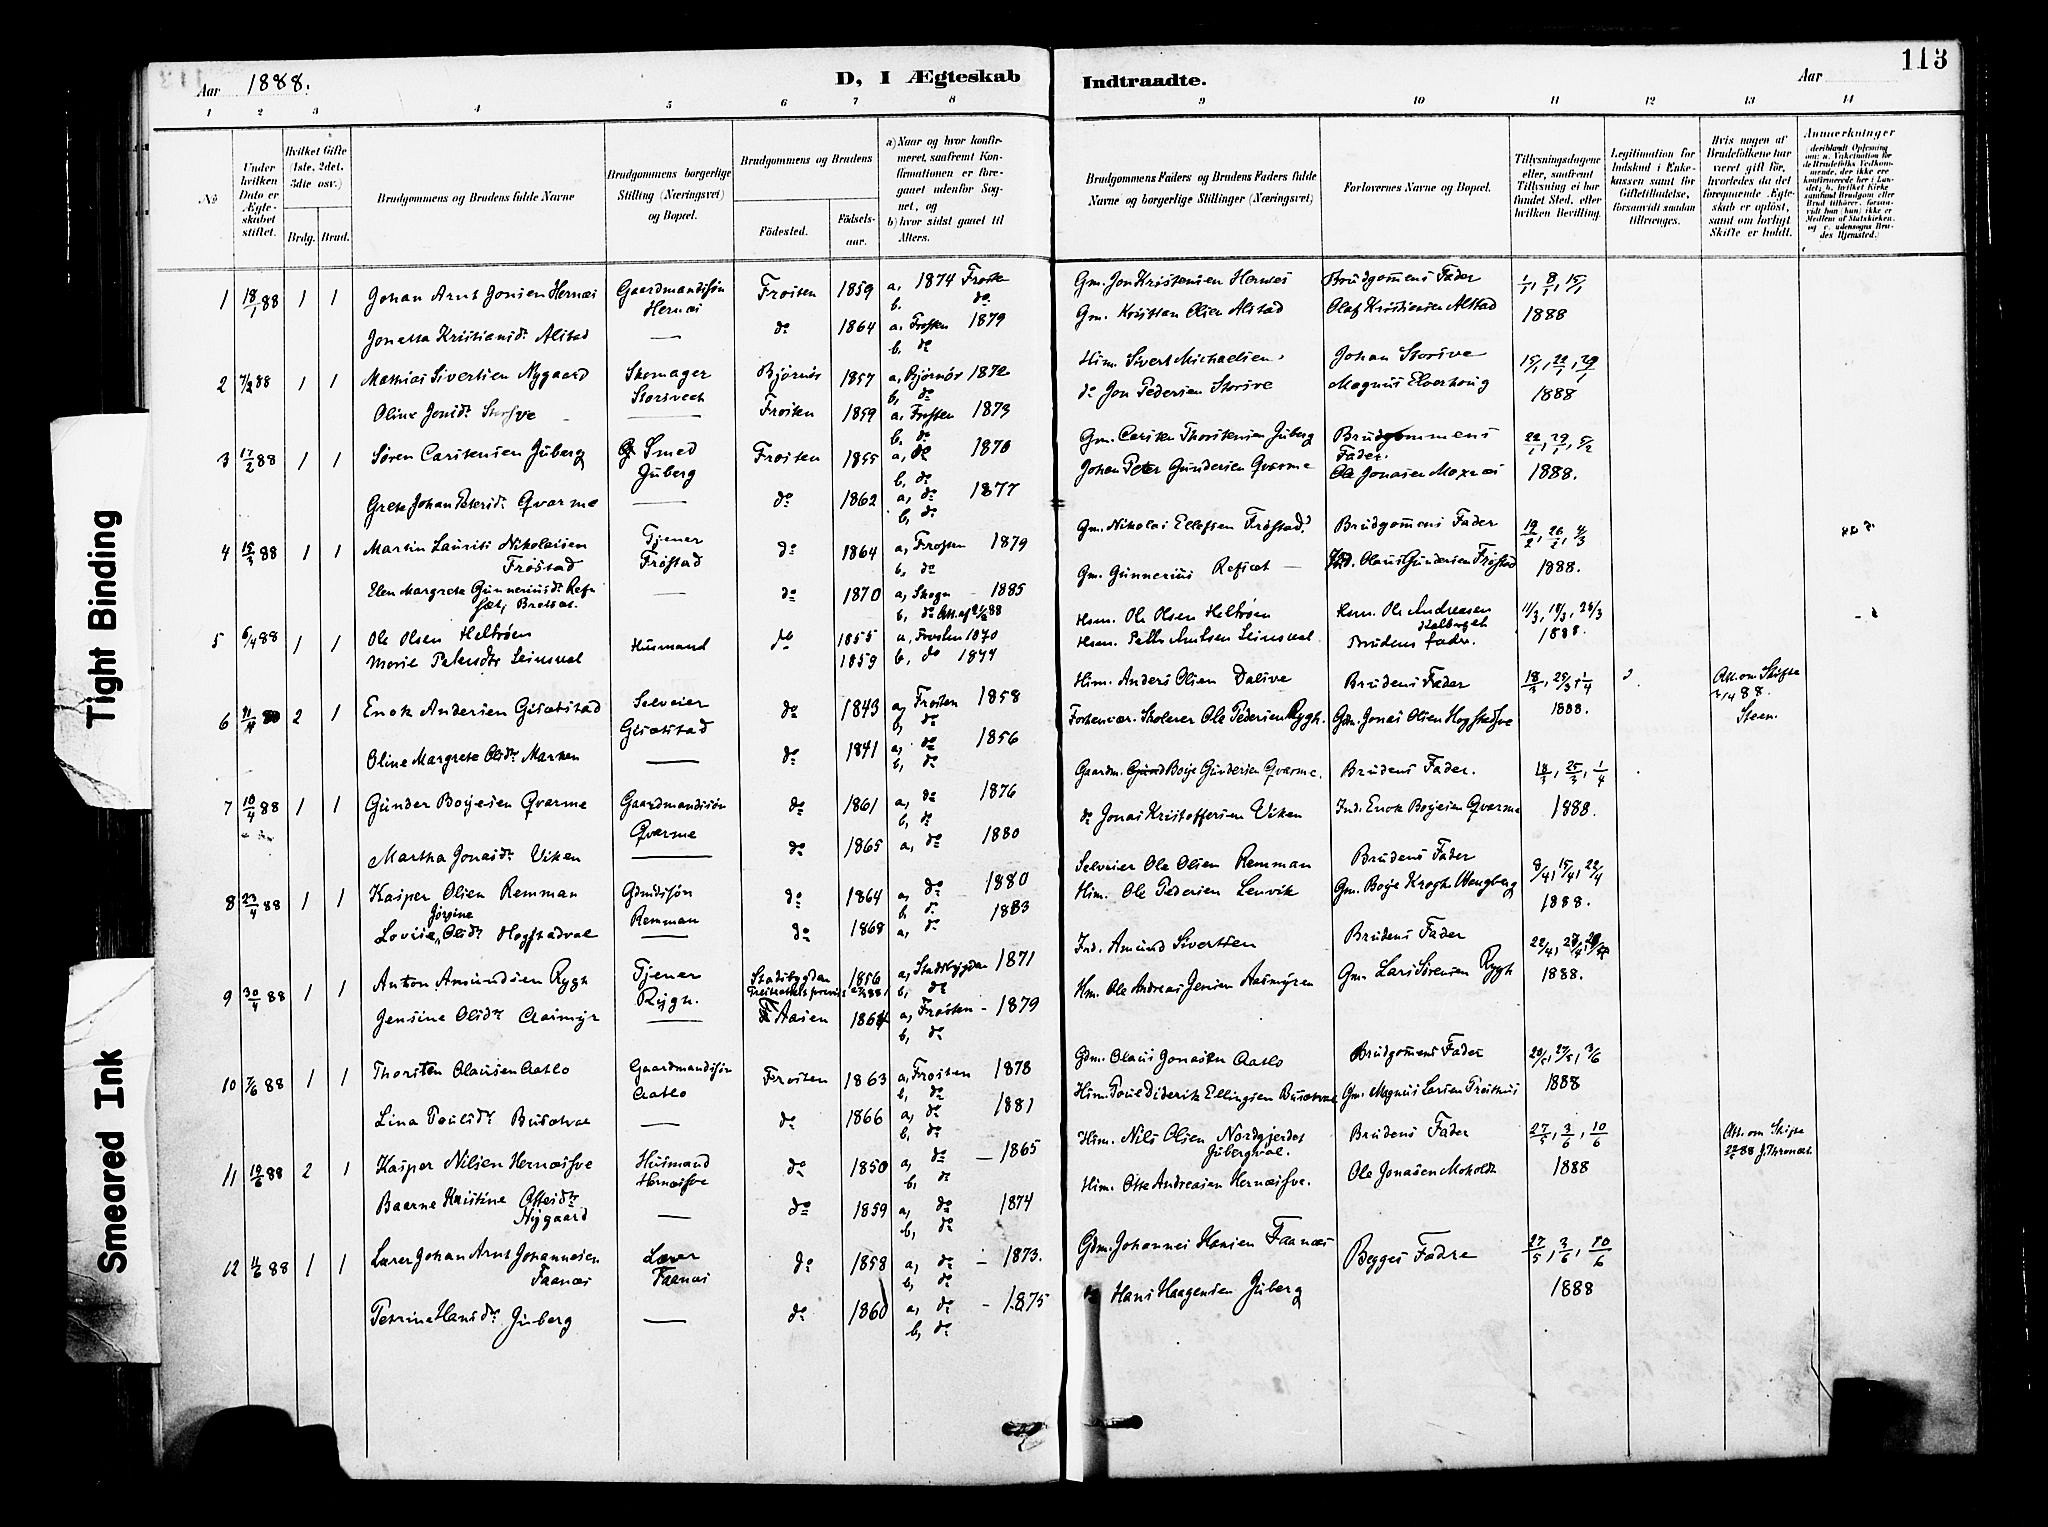 113
Aar 1888.
D, I Ægteskab Indtraadte.
Aar
1 2 3 4 5 6 7 8 9 10 11 12 13 14
No
Under hvilken Dato er Ægteskabet stiftet.
Hvilket Gifte (1ste, 2det, 3die osv.)
Brdg. Brud.
Brudgommens og Brudens fulde Navne
Brudgommens borgerlige Stilling (Næringsvei) og Bopæl.
Brudgommens og Brudens
Fødested.
Fødselsaar.
a) Naar og hvor konfirmeret, saafremt Konfirmationen er foregaaet udenfor Sognet, og
b) hvor sidst gaaet til Alters.
Brudgommens Faders og Brudens Faders fulde Navne og borgerlige Stillinger (Næringsvei)
Forlovernes Navne og Bopæl.
Tillysningsdagene eller, saafremt Tillysning ei har fundet Sted, efter hvilken Bevilling.
Legitimation for Indskud i Enkekassen samt for Giftetilladelse, forsaavidt saadan tiltrænges.
Hvis nogen af Brudefolkene har været gift før, hvorledes da det foregaaende Ægteskab er opløst, samt om lovligt Skifte er holdt.
Anmerkninger
1 18/1 88 1 1 Johan Arnt Jonsen Hernæs Gaardmandssøn Hernæs Frosten 1859 a, 1874 Frosten b. do Gm. Jon Kristensen Hernes Brudgommens Fader 1/1, 8/1, 15/1
Jonetta Kristiansdr Alstad — do 1864 a. Frosten 1879 b, do Gm. Kristian Olsen Alstad Olaf Kristiansen Alstad 1888
2 7/2 88 1 1 Mathias Sivertsen Nygaard Skomager Bjørnør 1857 a, Bjørnør 1872 b, do Hsm. Sivert Michaelsen Johan Storsve 15/1, 22/1, 29/1
Oline Jonsdr Storsve — Frosten 1859 a. Frosten 1873 b. do do Jon Pedersen Storsve Magnus Elverhoug 1888
3 17/2 88 1 1 Søren Carstensen Juberg Smed Juberg Frosten 1855 a, do 1870 b, do Gm. Carsten Thorstensen Juberg Brudgommens Fader. 22/1, 29/1, 5/2
Grete Johan Petersdr Qvarme — do 1862 a, do 1877 b, do Johan Peter Gundersen Qvarme Ole Jonasen Moxnes 1888.
4 15/3 88 1 1 Martin Laurits Nikolaisen Frøstad Tjener Frøstad do 1864 a, Frosten 1879 b, do Gm. Nikolai Ellefsen Frøstad Brudgommens Fader 19/2, 26/2, 4/3
Elen Margrete Gunneriusdr Refsæt, — do 1870 a, Skogn 1885 b, do Gm. Gunnerius Refsæt Ind. Olaus Gundersen Frøstad 1888.
5 6/4 88 1 1 Ole Olsen Heltrøen Husmand do 1855 a, Frosten 1870 Hsm. Ole Olsen Heltrøen Hsm. Ole Andreasen 11/3, 18/3, 25/3
1859 b, do 1874 Brudens fader. 1888.
6 2 1 Enok Andersen Gisætstad Selveier Gisætstad do 1843 a, Frosten 1858 b, do Hsm. Anders Olsen Dalsve Brudens Fader 18/3, 25/3, 1/4 Att. om Skifte 88. Steen.
Oline Margrete Olsdr Marken — do 1841 a, do 1856 b, do Skolerer Ole Pedersen Rygh. Gdm. Jonas Olsen Hogstadsve 1888.
7 10/4 88 1 1 Gunder Boyesen Qvarme Gaardmandssøn Qvarme do 1861 a, do 1876 b, do Gaardm. Boye Gundersen Qvarme. Brudens Fader. 18/3, 25/3, 1/4
Martha Jonasdr Viken — do 1865 a, do 1880 do Jonas Kristoffersen Viken Ind. Enok Boyesen Qvarme 1888.
8 23/4 88 1 1 Kasper Olsen Remman Gdmdssøn Remman do 1864 a, do 1880 b, do Selveier Ole Olsen Remman Brudens Fader 8/4, 15/4, 22/4
Lovise Jørgine Olsdr Hogstadval — do 1868 a, do 1883 Hsm. Ole Pedersen Lenvik Gm. Boye Krogh Wangberg 1888.
9 30/4 88 1 1 Anton Amundsen Rygh Tjener Rygh. Stadsbygden 1856 a, Stadsbygden 1871 b, do Ind. Amund Sivertsen Brudens Fader
Jensine Olsdr Aasmyr — Aasen 1864 a, Frosten - 1879 b, do Hm. Ole Andreas Jensen Aasmyren Gm. Lars Sørensen Rygh 1888.
10 7/6 88 1 1 Thorsten Olausen Aatlo Gaardmandssøn Aatlo Frosten 1863 a, Frosten 1878 b, do Gdm. Olaus Jonasen Aatlo Brudgommens Fader 20/5, 27/5, 3/6
Lina Poulsdr Busetval — do 1866 a, do 1881 b, do Hsm. Poul Diderik Ellingsen Busetval Gm. Magnus Larsen Presthus 1888
11 19/6 88 2 1 Kasper Nilsen Hernæssve Husmand Hernæssve do 1850 a, do — 1865 b, do Hsm. Nils Olsen Nordgjerdet Jubergval. Brudens Fader 27/5, 3/6, 10/6 Att. om Skifte 88
Baarne Kristine Ottesdr Nygaard — do 1859 a, do 1874 b, do Hsm. Otte Andreasen Hernæssve. Ole Jonasen Moholdt 1888
12 88 1 1 Lærer Johan Arnt Johannesen Faanæs Lærer Faanæs do 1858 a, do - 1873. b, do Gdm. Johannes Hansen Faanæs Begges Fædre 27/5, 3/6, 10/6
Petrine Hansdr Juberg — do 1860 a, do - 1875 b, do Hans Haagensen Juberg 1888
Tight Binding
Smeared Ink